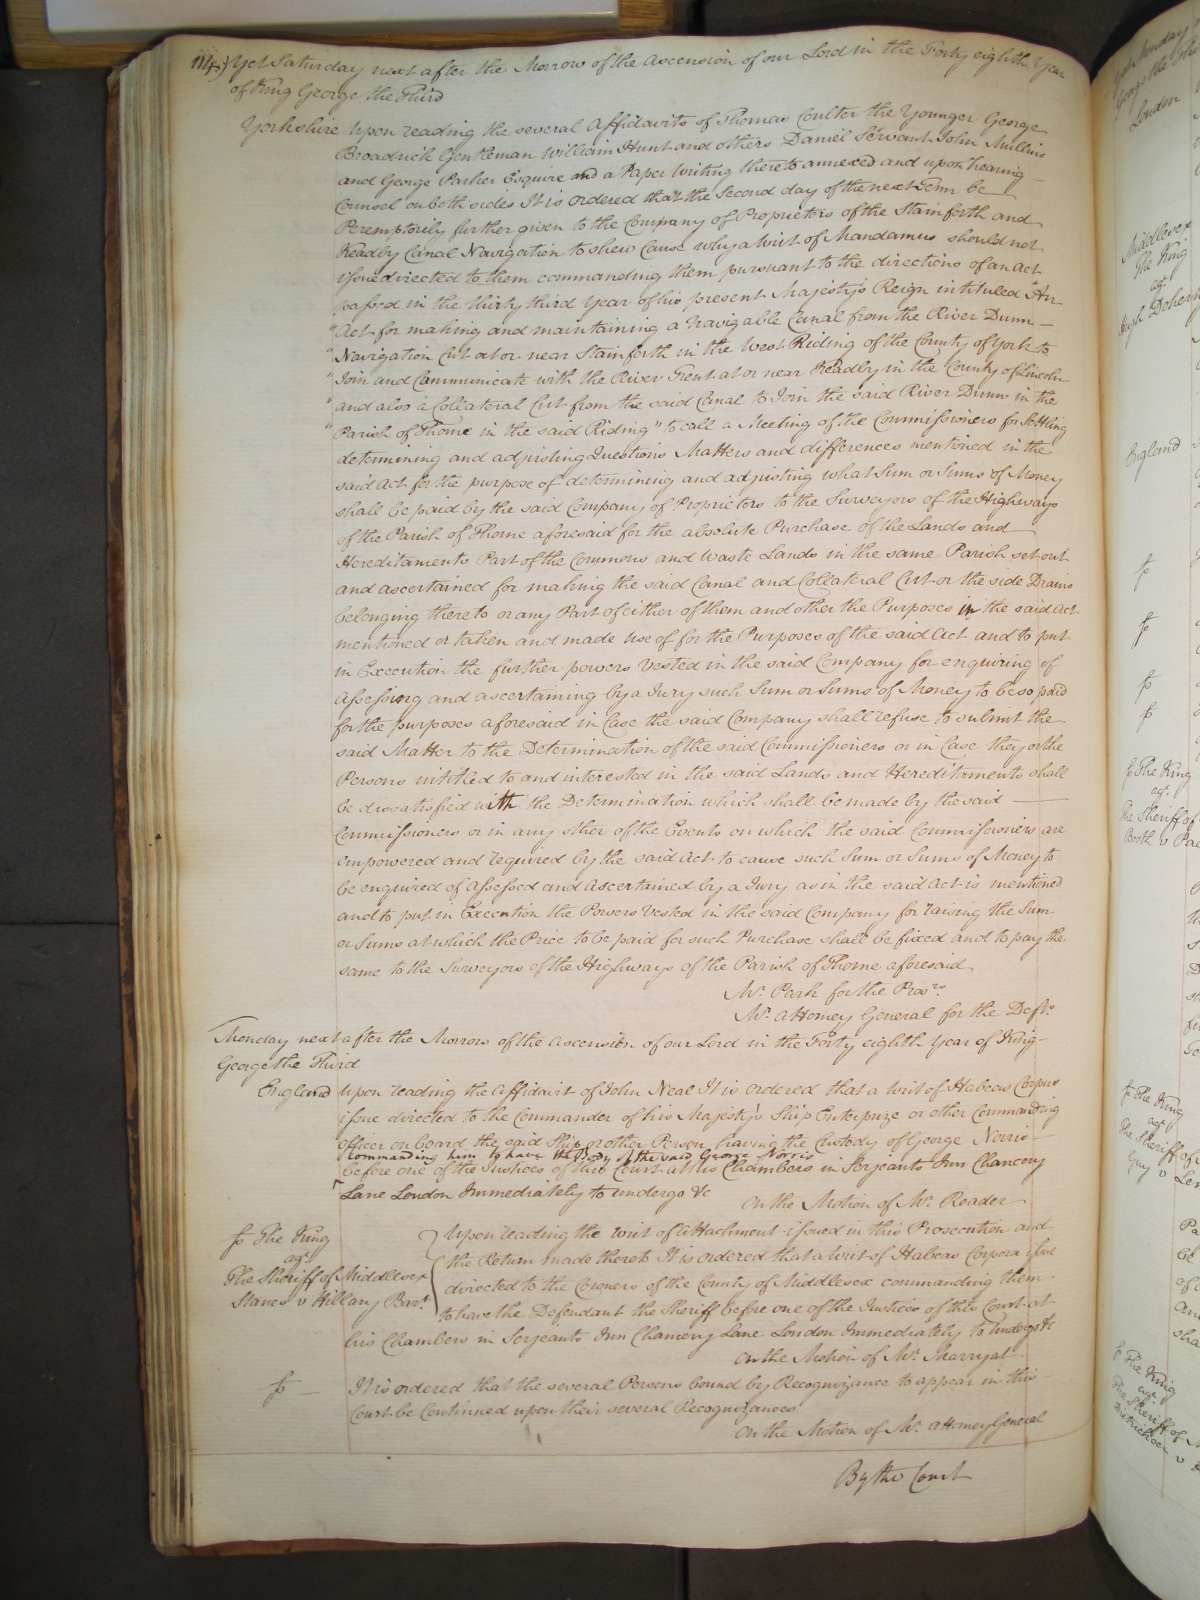 114) Yet Saturday next after the Morrow of the Ascension of our Lord in the Forty eighth Year
of King George the Third
Yorkshire Upon reading the several Affidavits of Thomas Coulter the Younger George
Broadrick Gentleman William Hunt and others Daniel Servant John Mullins
and George Parker Esquire and a Paper Writing thereto annexed and upon hearing
Counsel on both sides It is ordered that the Second day of the next Term be
Peremptorily further given to the Company of Proprietors of the Stainforth and
Keadby Canal Navigation to shew Cause why a Writ of Mandamus should not
issue directed to them commanding them pursuant to the directions of an Act
passed in the thirty third Year of his present Majesty's Reign intituled "An
"Act for making and maintaining a Navigable Canal from the River Dunn
"Navigation Cut at or near Stainforth in the West Riding of the County of York to
"Join and Communicate with the River Trent at or near Keadby in the County of Lincoln
"and also a Collateral Cut from the said Canal to Join the said River Dunn in the
"Parish of Thorne in the said Riding" to call a Meeting of the Commissioners for Settling
determining and adjusting Questions Matters and differences mentioned in the
said Act for the purpose of determining and adjusting what Sum or Sums of Money
shall be paid by the said Company of Proprietors to the Surveyors of the Highways
of the Parish of Thorne aforesaid for the absolute Purchase of the Lands and
Hereditaments Part of the Commons and Waste Lands in the same Parish set out
and ascertained for making the said Canal and Collateral Cut or the side Drains
belonging thereto or any Part of either of them and other the Purposes in the said Act
mentioned or taken and made use of for the Purposes of the said Act and to put
in Execution the further powers Vested in the said Company for enquiring of
Assessing and ascertaining by a Jury such Sum or Sums of Money to be so paid
for the purposes aforesaid in Case the said Company shall refuse to submit the
said Matter to the Determination of the said Commissioners or in Case they or the
Persons intitled to and interested in the said Lands and Hereditaments shall
be dissatisfied with the Determination which shall be made by the said
Commissioners or in any other of the Events on which the said Commissioners are
empowered and required by the said Act to cause such Sum or Sums of Money to
be enquired of Assessed and Ascertained by a Jury as in the said Act is mentioned
and to put in Execution the Powers Vested in the said Company for raising the Sum
or Sums at which the Price to be paid for such Purchase shall be fixed and to pay the
same to the Surveyors of the Highways of the Parish of Thorne aforesaid
Mr. Park for the Prosrs.
Mr. Attorney General for the Defts.
Monday next after the Morrow of the Ascension of our Lord in the Forty eighth Year of King
George the Third
England Upon reading the Affidavit of John Neal It is ordered that a Writ of Habeas Corpus
issue directed to the Commander of his Majesty's Ship Enterprize or other Commanding
Officer on board the said Ship or other Person having the Custody of George Norris
Commanding him to have the Body of the said George Norris
before one of the Justices of this Court at his Chambers in Serjeants Inn Chancery
Lane London Immediately to undergo &c
On the Motion of Mr. Reader
The King
agt.
The Sheriff of Middlesex
Stanes v Hillary Bart.
Upon reading the Writ of Attachment issued in this Prosecution and
the Return made thereto It is ordered that a Writ of Habeas Corpora issue
directed to the Coroners of the County of Middlesex commanding them
to have the Defendant the Sheriff before one of the Justices of this Court at
his Chambers in Serjeants Inn Chancery Lane London Immediately to Undergo &c
On the Motion of Mr. Marryat
It is ordered that the several Persons bound by Recognizance to appear in this
Court be Continued upon their several Recognizances
On the Motion of Mr. Attorney General
By the Court
London
Middlesex
The King
agt.
Hugh Doherty
England
The King
agt.
The Sheriff of
Booth v
The King
agt.
The Sheriff of
Guy v
The King
agt.
The Sheriff of